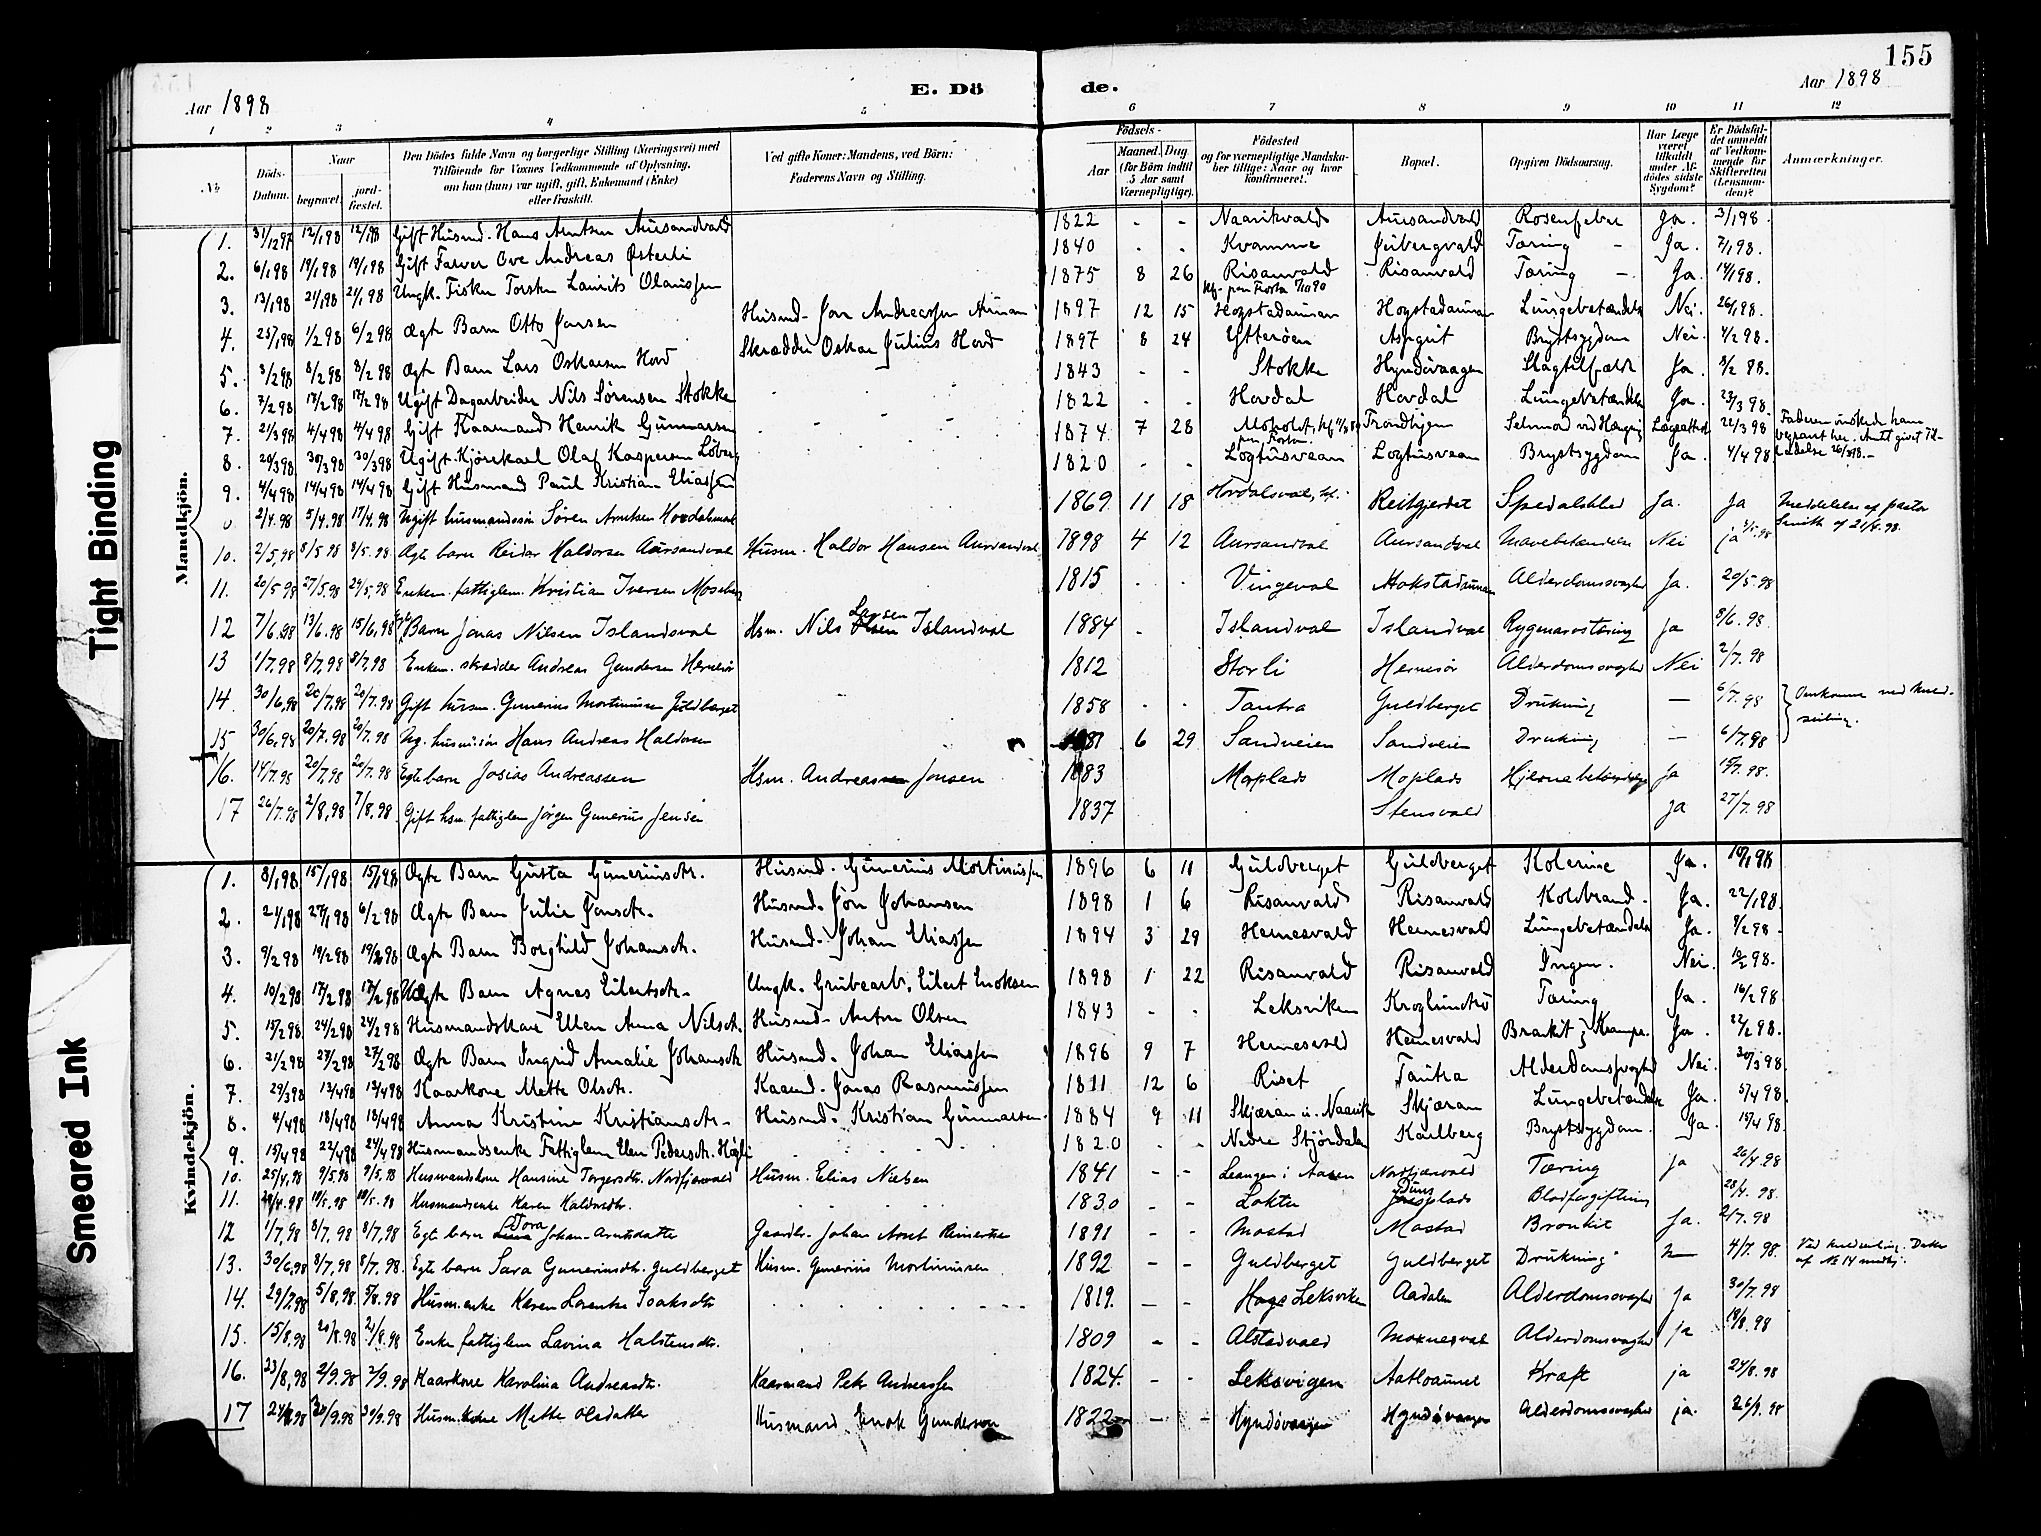 155
Aar 1898
E. Dö
de.
Aar 1898
1 2 3 4 5 6 7 8 9 10 11 12
No
Döds-Datum.
Naar
begravet.
jord-fæstet.
Den Dödes fulde Navn og borgerlige Stilling (Næringsvei) med
Tilföiende for Voxnes Vedkommende af Oplysning,
om han (hun) var ugift, gift, Enkemand (Enke)
eller fraskilt.
Ved gifte Koner: Mandens, ved Börn:
Faderens Navn og Stilling.
Födsels-
Aar
Maaned. Dag
(for Börn indtil 5 Aar samt Værnepligtige).
Födested
og for værnepligtige Mandska-
ber tillige: Naar og hvor
konfirmeret.
Bopæl.
Opgiven Dödsaarsag.
Har Læge været tilkaldt under Af-dödes sidste Sygdom?
Er Dödsfal-det anmeldt af Vedkom-mende for Skifteretten (Lensman-den)?
Anmærkninger.
Mandkjön.
1. 31/12 97 12/1 98 12/1 98 Gift Husmd. Hans Arntsen Aursandvald 1822 - - Naavikvald Aursandvald Rosenfeber Ja. 3/1 98.
2. 6/1 98 19/1 98 19/1 98 Gift Farver Ove Andreas Østerli 1840 . . Kvamme Jubergvald Tæring Ja. 7/1 98.
3. 13/1 98 21/1 98 21/1 98 Ungk. Fisker Torsten Laurits Olaussen 1875 8 26 Risanvald Risanvald Tæring Ja. 14/1 98.
4. 25/1 98 1/2 98 6/2 98 Ægte Barn Otto Jonsen Husmd. Jon Andreassen 1897 12 15 Hogstadaunan Hogstadaunan Lungebetændelse Nei. 26/1 98.
5. 3/2 98 8/2 98 8/2 98 Ægt Barn Lars Oskarsen Hovd Skrædder Oskar Julius Hovd 1897 8 24 Ytterøen Brystsygdom Nei. 4/2 98.
6. 7/2 98 17/2 98 17/2 98 Ugift Dagarbeider Nils Sørensen Stokke 1843 - - Stokke Hyndøvaagen Slagtilfælde Ja. 8/2 98.
7. 21/3 98 4/4 98 4/4 98 Gift Kaarmand Henrik Gunnarsen 1822 . . Hovdal Hovdal Lungebetændelse Ja. 23/3 98.
8. 20/3 98 30/3 98 30/3 98 Ugift Kjørekarl Olaf Kaspersen Loberg 1874 7 28 Trondhjem Selvmord ved Hængning Lægeattest 22/3 98 Faderen ønskede ham
9. 4/4 98 14/4 98 14/4 98 Gift Husmand Paul Kristian Eliassen 1820 - - Logtusveau Logtusveau Brystsygdom Ja. 4/4 98
2/4.98 5/4.98 17/4.98 Ugift husmandssøn Søren Arntsen 1869 11 18 Reitgjerdet Spedalskhed Ja. Ja Meddelelse af pastor
10. 2/5.98 8/5 98 8/5.98 Ægt barn Reidar Haldorsen Aursandval Husm. Haldor Hansen Aursandval 1898 4 12 Aursandval Aursandval Mavebetændelse Nei ja 3/5.98
11. 20/5 98 27/5.98 29/5.98 Enkem. fattiglem. Kristian Iversen 1815 . . Vingeval Alderdomssvaghed Ja. 20/5.98
12 7/6.98 13/6.98 15/6.98 Egt. Barn Jonas Nilsen Islandsval Hsm. Nils Larsen Islandval 1884 Islandval Islandval Rygmarvstæring ja 8/6.98.
13 1/7.98 8/7.98 8/7.98 Enkem. skrædder Andreas Gundersen Hernesør 1812 Storli Hernesør Alderdomssvaghed Nei 2/7.98
14 30/6.98 20/7.98 20/7.98 Gift husm. Gunerius Mortinusen Guldberget 1858 . . Tautra Guldberget Drukning — 6/7.98 Omkomne ved kuld-
seiling.
15 30/6.98 20/7.98 20/7.98 Ug. husm.søn Hans Andreas Haldorsen 1881 6 29 Sandveien Sandveien Drukning — 6/7.98
16. 14/7.98 20/7.98 20/7.98 Egt barn Josias Andreassen Hsm. Andreas Jonsen 1883 Moplads Moplads Hjernebetændelse Ja 15/7.98.
17 26/7.98 2/8.98 7/8.98 Gift hsm. fattiglem Jørgen Gunerius Jensen 1837 Stensvald ja 27/7.98
Kvindekjön.
1. 8/1 98 15/1 98 15/1 98 Ægte Barn Gusta Guneriusdtr. Husmd. Gunerius Mortinussen 1896 6 11 Guldberget Guldberget Kolerine Ja. 10/1 98
2. 21/1 98 27/1 98 6/2 98 Ægt. Barn Julie Jonsdtr. Husmd. Jon Johansen 1898 1 6 Risanvald Risanvald Koldbrand. Ja. 22/1 98.
3. 9/2 98 19/2 98 19/2 98 Ægt Barn Borghild Johansdtr. Husmd. Johan Eliassen 1894 3 29 Hernesvald Hernesvald Lungebetændelse Ja. 9/2 98.
4. 10/2 98 17/2 98 17/2 98 Uægte Barn Agnes Eilertsdtr. Ungk. Grubearb. Eilert Enoksen 1898 1 22 Risanvald Risanvald Ingen. Nei. 12/2 98.
5 15/2 98 24/2 98 24/2 98 Husmandskone Ellen Anna Nilsdtr. Husmd. Anton Olsen 1843 . . Leksviken Tæring Ja. 16/2 98
6. 21/2 98 27/2 98 27/2 98 Ægt Barn Ingrid Amalie Johansdtr Husmd. Johan Eliassen 1896 9 7 Hernesvald Hernesvald Bronkit & Krampe. Ja. 22/2 98.
7. 29/3 98 13/4 98 13/4 98 Kaarkone Mette Olsdtr. Kaarmd. Jonas Rasmussen 1811 12 6 Riset Tautra Alderdomssvaghed Nei. 30/3 98
8. 4/4 98 18/4 98 18/4 98 Anna Kristine Kristiansdtr. Husmd. Kristian Gunnarsen 1884 9 11 Skjæran u. Naavik Skjæran Lungebetændelse Ja. 5/4 98
9. 15/4 98 22/4 98 24/4 98 Husmandsenke Fattiglem Elen Pedersdtr. Høgli 1820 - - Nedre Stjørdalen Karlberg Brystsygdom. Ja. 15/4 98
10. 25/4.98 9/5.98 9/5.98 Husmandskone Hansine Torgersdtr. Nordfjærvald Husm. Elias Nielsen 1841 - - Leangen i Aasen Nordfjærvald Tæring ja 26/4.98
11. 10/5.98 10/5.98 Husmandsenke Karen Haldorsdtr. 1830 - - Lokten Blodforgiftning 28/4.98.
12 1/7.98 8/7.98 8/7.98 Egt barn Tora Johan-Arntsdatter Gaardbr. Johan Arnt Reinertsen 1891 - - Mostad Mostad Bronkit Ja. 2/7.98
13. 30/6.98 8/7.98 8/7.98. Egt barn Sara Guneriusdtr. Guldberget Husm. Gunerius Mortinusen 1892 - - Guldberget Guldberget Drukning — 4/7.98. Ved kuldseiling. Datter
af No 14 mandkj.
14. 29/7.98 5/8.98 5/8.98 Husm.enke Karen Lorentse Isaksdtr 1819. — - Leksviken Aadalen Alderdomssvaghed ja 30/7.98
15. 15/8.98 20/8.98 21/8.98 Enke fattiglem Lavina Halstensdtr. 1809 - - Alstadvald Moxnesval Alderdomsvaghed ja 19/8.98
16. 23/8.98 2/9.98 2/9.98 Kaarkone Karolina Andreasdtr. Kaarmand Petr Andreassen 1824. - - Leksvigen Kræft ja 24/8.98
17 24/8.98 30/9.98 Husm.kone Mette Olsdatter Husmand Enok Gunderson 1822 — - Hyndøvaagen Hyndøvaagen Alderdomssvaghed ja. 26/8.98
Tight Binding
Smeared Ink